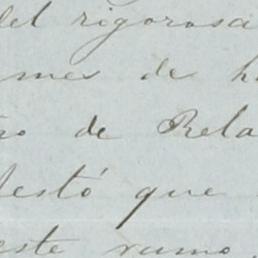 del rigorosa
mes de h
ro de Rela
festó que
este ramo,